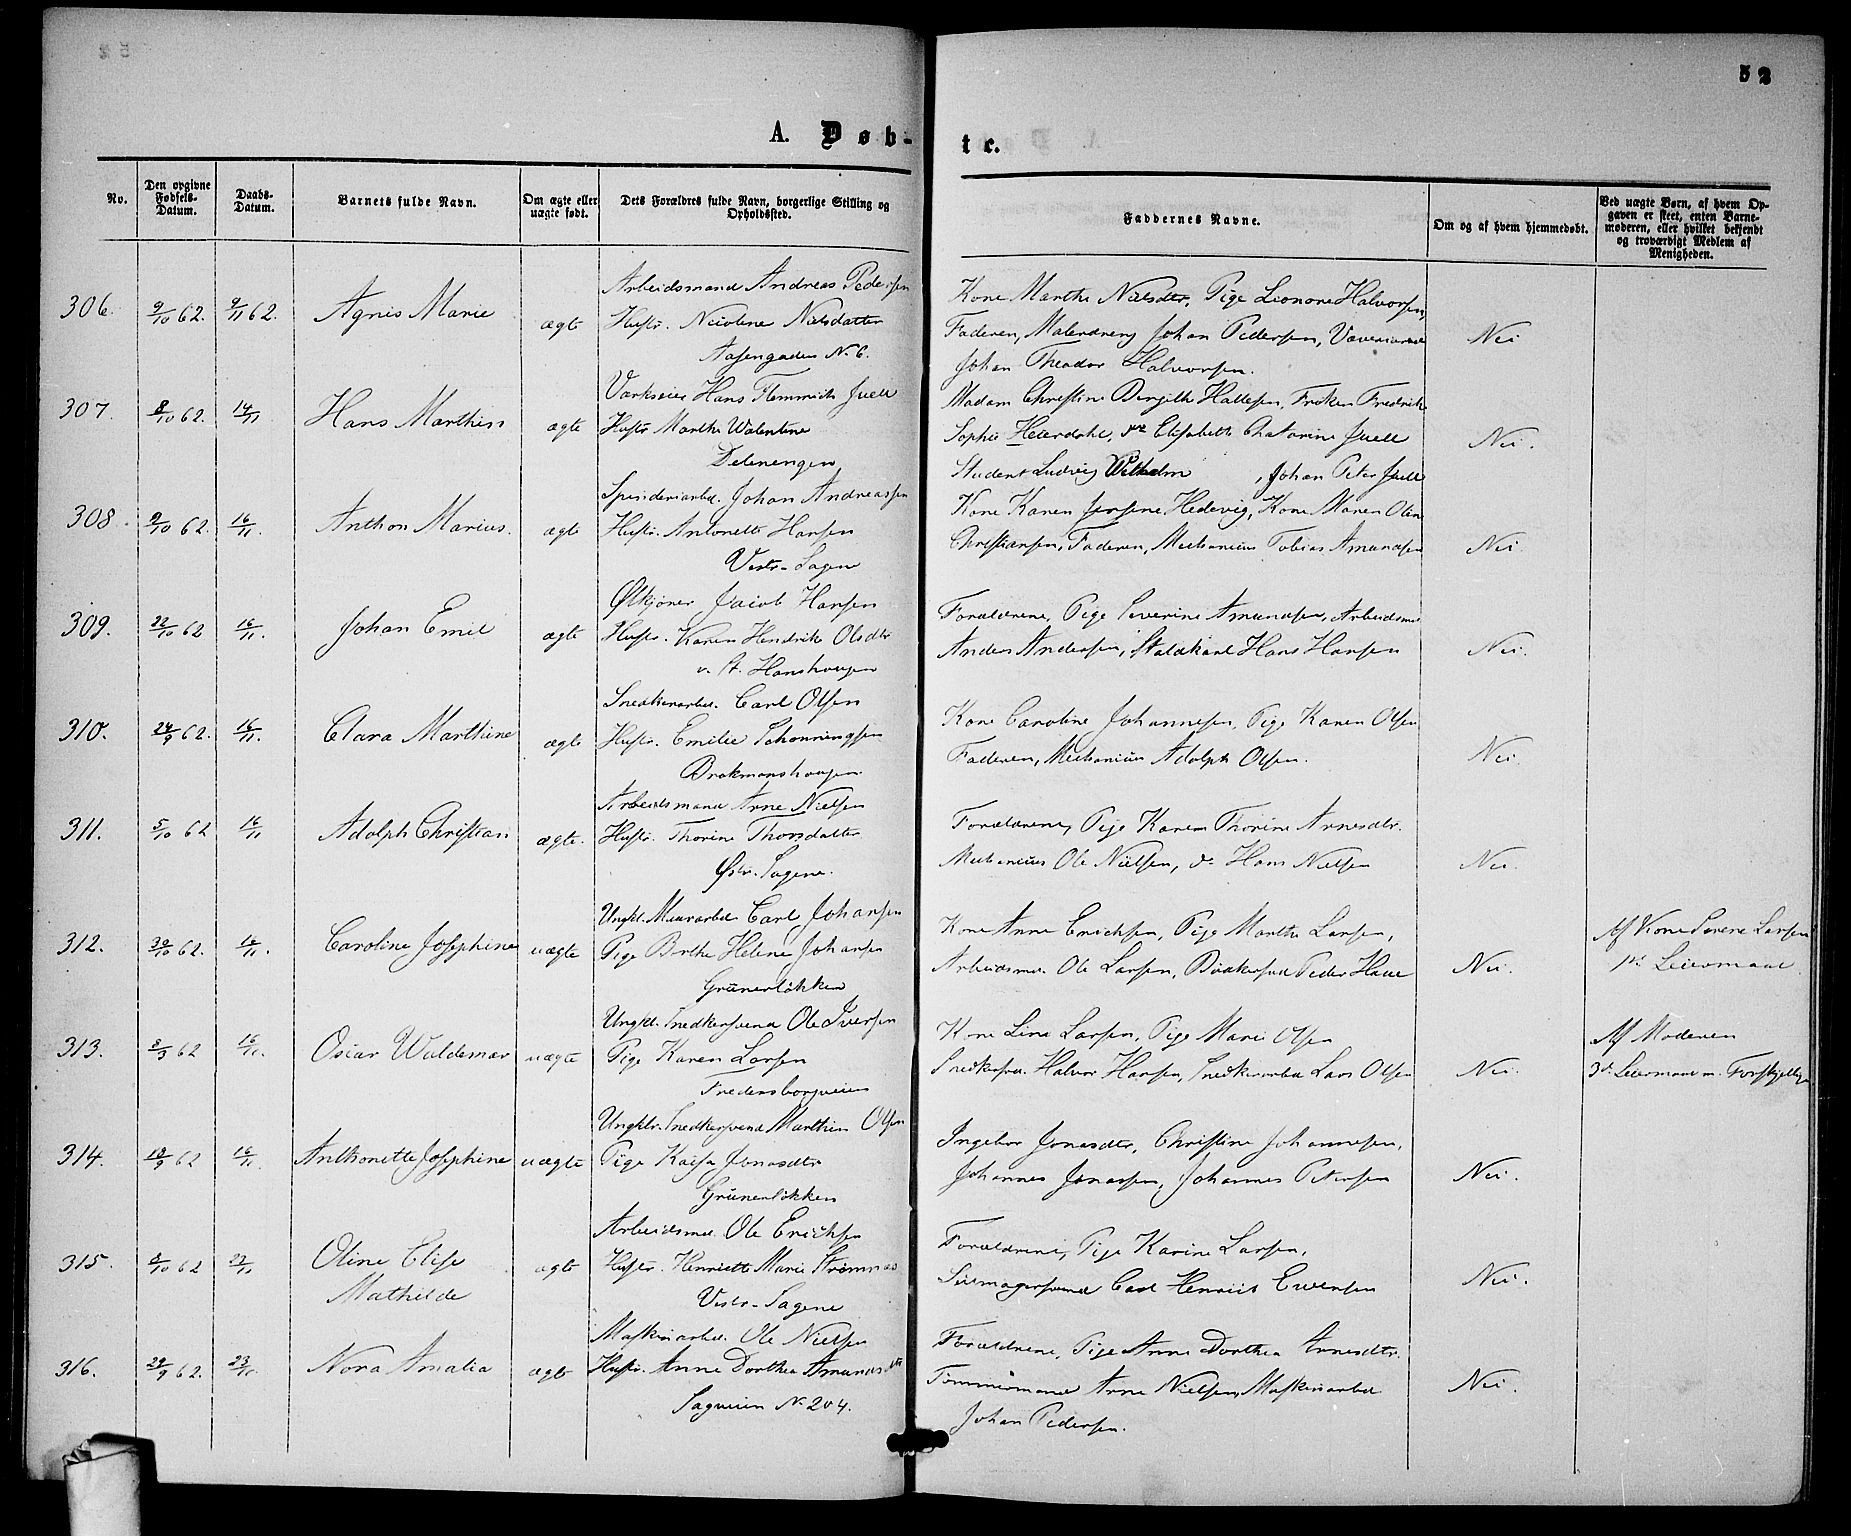 52
A. Døb-
te.
No.
Den opgivne Fødsels-Datum.
Daabs-Datum.
Barnets fulde Navn.
Om ægte eller uægte født.
Dets Forældres fulde Navn, borgerlige Stilling og Opholdssted.
Faddernes Navne.
Om og af hvem hjemmedøbt.
Ved uægte Børn, af hvem Opgaven er skeet, enten Barnemoderen, eller hvilket bekjendt og troværdigt Medlem af Menigheden.
306. 9/10 62. 9/11 62. Agnes Marie ægte
Arbeidsmand Andreas Pedersen
Hustr. Nicoline Nielsdatter
Aasengaden N. 6.
Kone Marthe Nielsdtr, Pige Leonore Halvorsen,
Faderen, Malerdreng Johan Pedersen,
Johan Theodor Halvorsen.
Nei
307. 8/10 62. 14/11. Hans Marthin ægte
Værkseier Hans Hemmich Juell
Hustr Marthe Walentine
Delenengen
Madam Christine Bergithe Hallesen, Frøken Fredrikke
Sophie Heierdahl, do Elisabeth Chatarine Juell
Student Ludvig Wilhelm , Johan Peter Juell
Nei.
308. 9/10 62. 16/11. Anthon Marius. ægte
Spinderiarbd. Johan Andreassen
Hustr. Antonette Hansen
Vestr. Sagene
Kone Karen Jensine Hedevig, Kone Maren Oline
Christiansen, Faderen, Mechanicus Tobias Amundsen
Nei.
309. 22/10 62 16/11. Johan Emil ægte
Ølkjører Jacob Hansen
Hustr. Karen Hendrikke Olsdtr
v. St. Hanshougen
Forældrene, Pige Severine Amundsen, Arbeidsmd
Anders Andersen, Staldkarl Hans Hansen
Nei.
310. 24/9 62. 16/11. Clara Marthine ægte
Snedkerarbd. Carl Olsen
Hustr. Emilie Schønningsen
Brakmanshougen
Kone Caroline Johannesen, Pige Karen Olsen
Faderen, Mechanicus Adolph Olsen.
Nei.
311. 5/10 62 16/11 Adolph Christian ægte.
Arbeidsmand Arne Nielsen
Hustr. Thorine Thorsdatter
Østr. Sagene.
Forældrene, Pige Karen Thorine Arnesdtr.
Mechanicus Ole Nielsen, do Hans Nielsen
Nei.
312. 30/10 62. 16/11. Caroline Josephine uægte
Ungkl. Murarbd. Carl Johansen
Pige Berthe Helene Johansen
Grünerløkken
Kone Anne Erichsen, Pige Marthe Larsen,
Arbeidsmd. Ole Larsen, Bødkersvd Peder Haue
Nei.
Af Kone Serene Larsen
1ste Leiermaal
313. 8/9 62 16/11. Oscar Waldemar uægte
Ungkl. Snedkersvend Ole Iversen
Pige Karen Larsen
Fredensborgveien
Kone Lina Larsen, Pige Marie Olsen
Snedkersvd. Halvor Hansen, Snedkerarbd Lars Olsen
Nei.
Af Moderen
3de Leiermaal m. Forskjellige
314. 18/9 62 16/11. Anthonette Josephine uægte
Ungklr. Snedkersvend Marthin Olsen
Pige Kaisa Jonasdtr
Grünerløkken
Ingebor Jonasdtr, Christine Johannesen,
Johannes Jonassen, Johannes Petersen
Nei.
315. 8/10 62 22/11 Oline Elise
Mathilde ægte
Arbeidsmd. Ole Erichsen
Hustr. Henriette Marie Strømnæs
Vestr. Sagene
Forældrene, Pige Karine Larsen,
Seilmagersvend Carl Henrich Evensen
Nei.
316. 29/9 62. 23/11. Nora Amalia ægte
Maskinarbd. Ole Nielsen
Hustr. Anne Dorthea Amundsdtr
Sagveien N. 204.
Forældrene, Pige Anne Dorthea Arnesdtr.
Tømmermand Arne Nielsen, Maskinarbd
Johan Pedersen.
Nei.